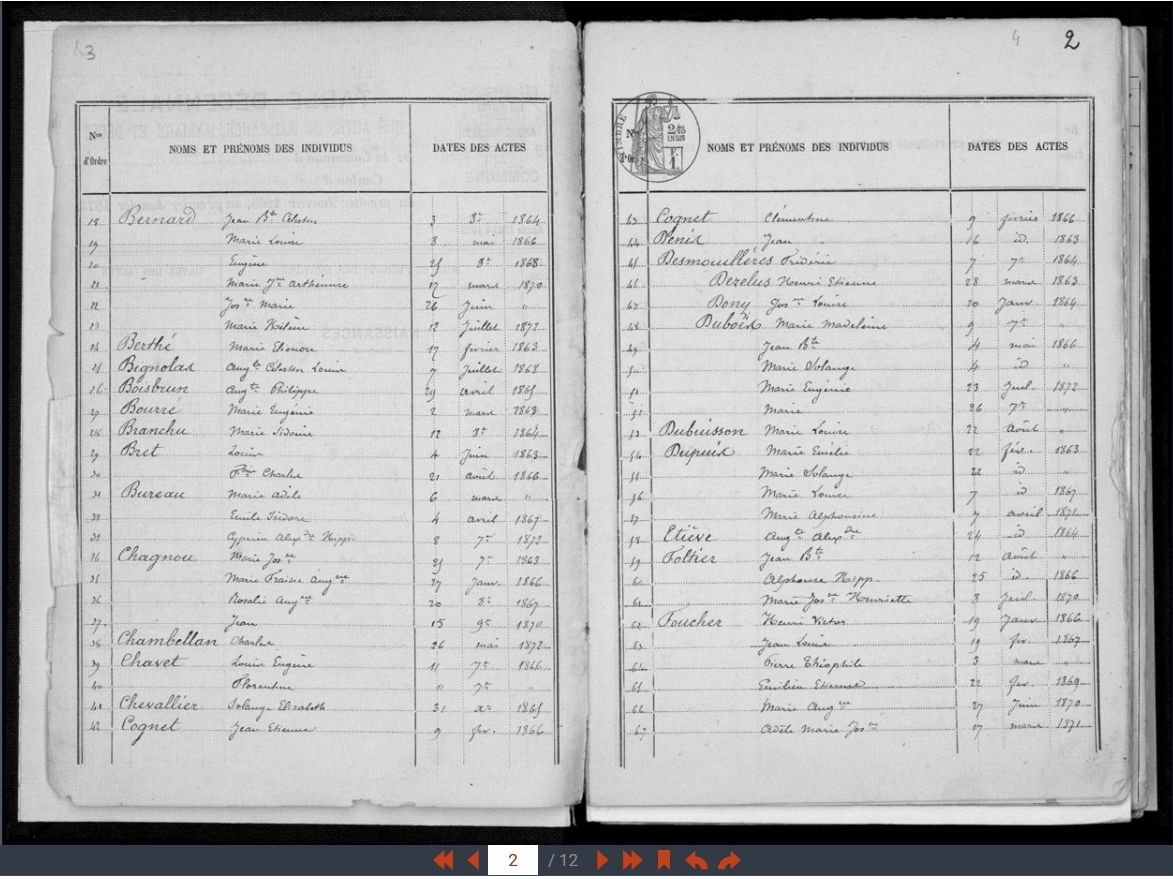 3
Nos d'Ordre NOMS ET PRÉNOMS DES INDIVIDUS DATES DES ACTES
18 Bernard Jean Bte Célestin 3 8re 1864
19 Marie Louise 8 mai 1866
20 Eugène 25 8re 1868
21 Marie Jne Arthemise 12 mars 1870
22 Josne Marie 26 Juin "
23 Marie 12 Juillet 1872
24 Berthé Marie Eléonore 17 février 1863
25 Bignolas Augte Célestin Louis 7 Juillet 1868
26 Boisbrun Augte Philippe 29 avril 1865
27 Bourré Marie Eugénie 2 mars 1863
28 Branchu Marie Sidonie 12 8re 1864
29 Bret Louis 4 Juin 1863
30 Charles 21 août 1866
31 Bureau Marie Adèle 6 mars "
32 Emile Isidore 4 avril 1867
33 Cyprien Alexdre Hipp. 8 7re 1872
34 Chagnou Marie Josne 25 7re 1863
35 Marie Augne 27 Janv. 1866
36 Rosalie Augne 20 8re 1867
37 Jean 15 9re 1870
38 Chambellan Charles 26 mai 1872
39 Chavet Louis Eugène 11 7re 1866
40 Florentin " 7re "
41 Chevallier Solange Elisabeth 31 xre 1865
42 Cognet Jean Etienne 9 fév. 1866
4 2
TIMBRE
Nos d'Ordre NOMS ET PRÉNOMS DES INDIVIDUS DATES DES ACTES
43 Cognet Clémentine 9 février 1866
44 Denis Jean 16 id. 1863
45 Desmouillères Frédéric 7 7re 1864
46 Dezelus Henri Etienne 28 mars 1863
47 Dony Josne Louise 20 Janv. 1864
48 Dubois Marie Madeleine 9 7re "
49 Jean Bte 4 mai 1866
50 Marie Solange 4 id "
51 Marie Eugénie 23 Juil. 1872
52 Marie 26 7re "
53 Dubuisson Marie Louise 22 Août "
54 Dupuis Marie Emilie 22 fév. 1863
55 Marie Solange 22 id "
56 Marie Louise 7 id 1867
57 Marie Alphonsine 7 avril 1871
58 Etiève Augte Alexdre 24 id 1864
59 Foltier Jean Bte 12 Août "
60 Alphonse Hipp. 25 id. 1866
61 Marie Josne Henriette 8 Juil. 1870
62 Foucher Henri Victor 19 Janv. 1866
63 Jean Louis 19 fév. 1867
64 Pierre Théophile 3 mars "
65 Emilien Etienne 22 fév. 1869
66 Marie Augne 27 Juin 1870
67 Adèle Marie Josne 17 mars 1871
2 / 12